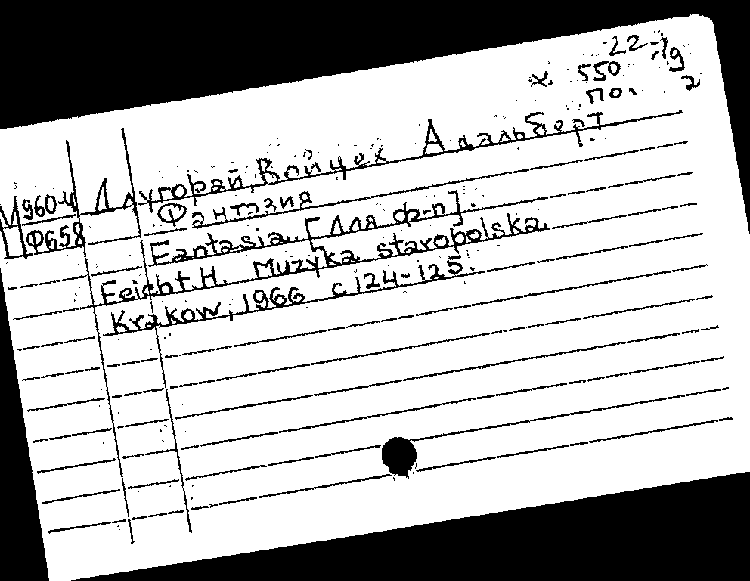 22-19
550 2
по.
Длугорай, Войцех Адальберт
М960-4
Ф658
Фантазия
Fantasia. [Для ф-п].
Feicht H. Muzyka staropolska.
Krakow, 1966 с 124-125.